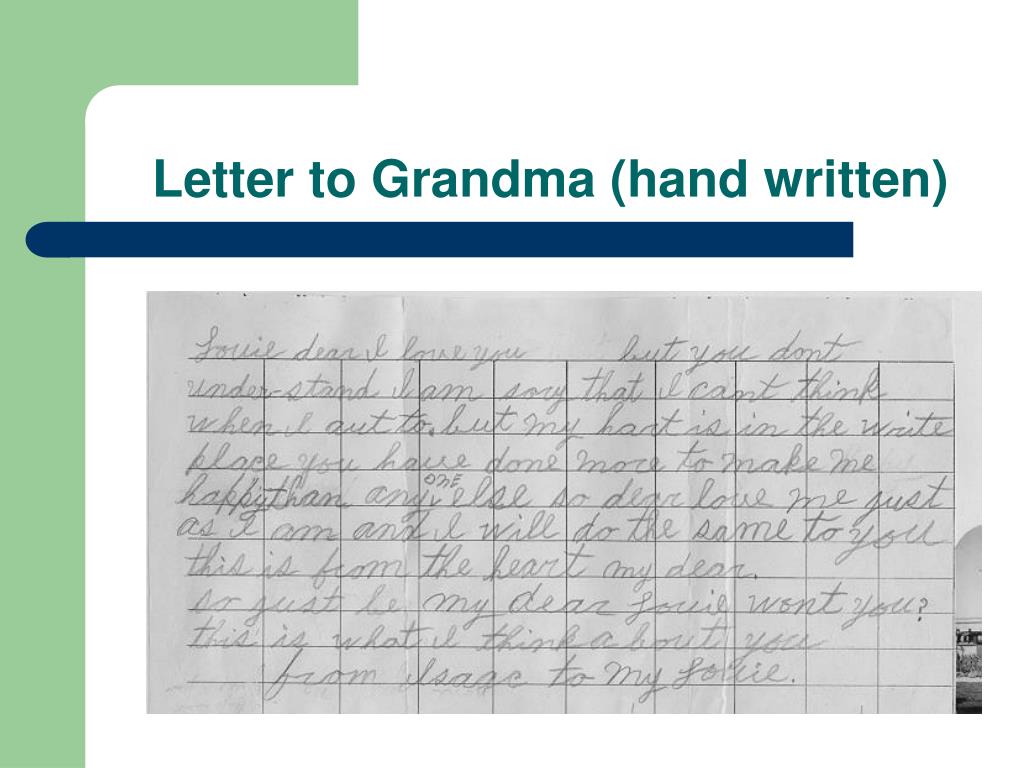 Letter to Grandma (hand written)
Louie dear I love you but you dont
under-stand I am sory that I cant think
when I aut to. but my hart is in the write
place you have done more to make me
happy than any one else so dear love me just
as I am and I will do the same to you
this is from the heart my dear.
so just be my dear Louie wont you?
this is what I think a bout you
from Isaac to my Louie.